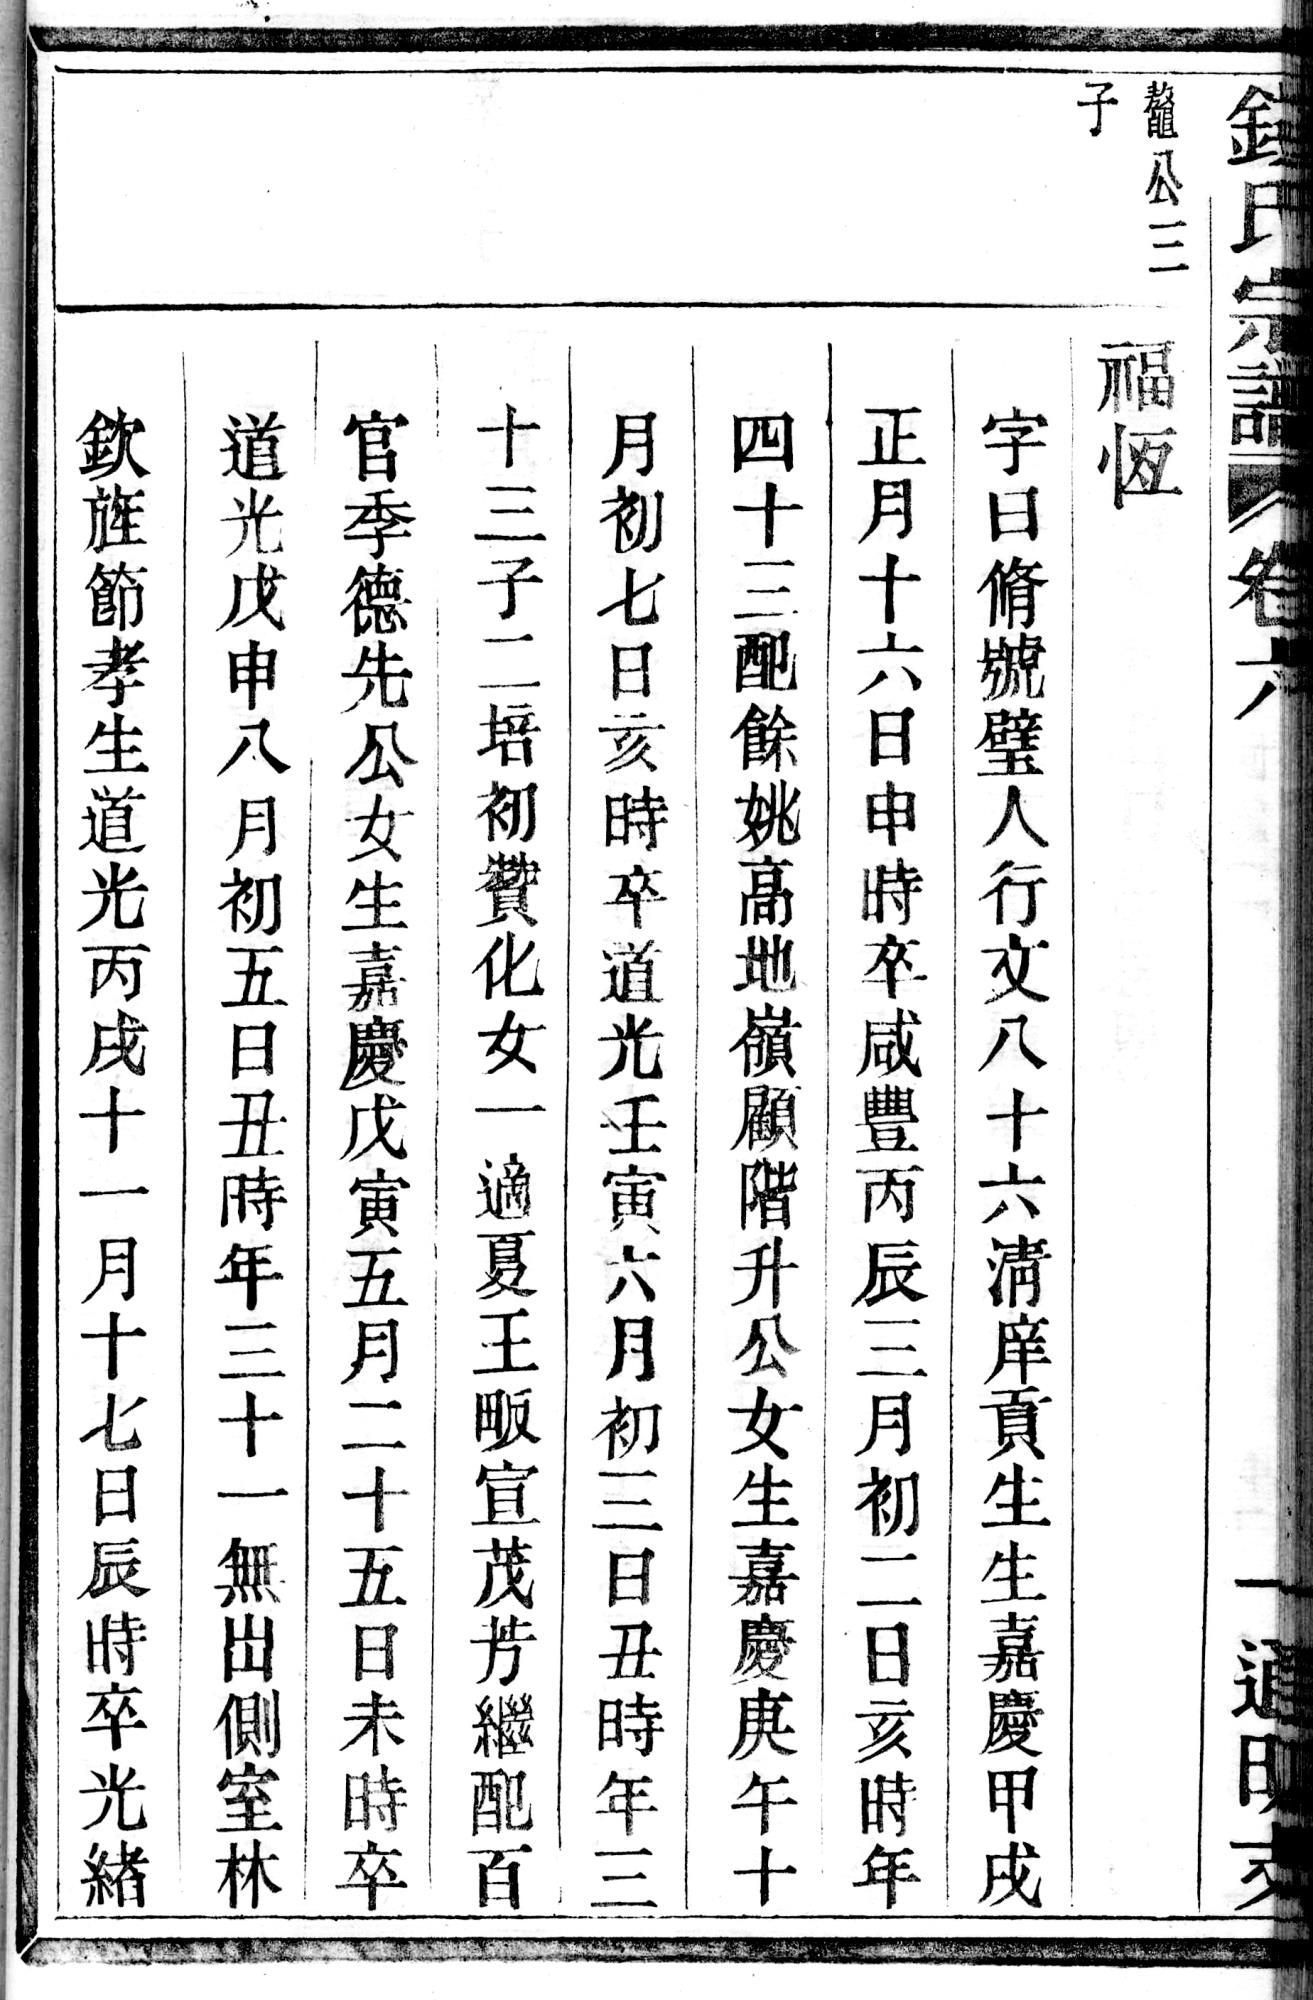 鍾氏宗譜 卷六 一 通明支
鼇公三
子
福恆
字日脩號璧人行文八十六淸庠貢生生嘉慶甲戌
正月十六日申時卒咸豐丙辰三月初二日亥時年
四十三配餘姚高地嶺顧階升公女生嘉慶庚午十
月初七日亥時卒道光壬寅六月初三日丑時年三
十三子二培初贊化女一適夏王畈宣茂芳繼配百
官季德先公女生嘉慶戊寅五月二十五日未時卒
道光戊申八月初五日丑時年三十一無出側室林
欽旌節孝生道光丙戌十一月十七日辰時卒光緖